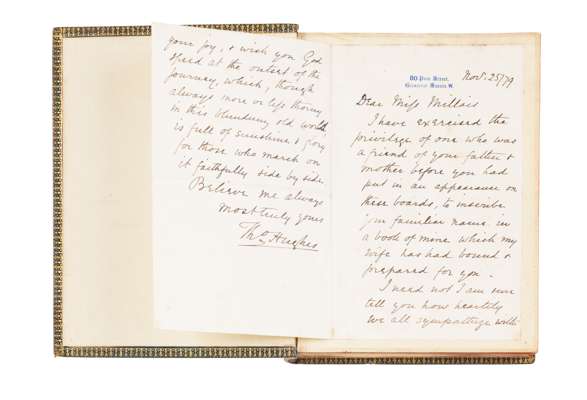 80 Park Street,
Grosvenor Square. W.
Nov. 25/79
Dear Miss Millais
I have exercised the
privilege of one who was
a friend of your father &
mother before you had
put in an appearance on
these boards, to inscribe
your familiar name in
a book of mine which my
wife has had bound &
prepared for you.
I need not I am sure
tell you how heartily
we all sympathize with
your joy, & wish you God
speed at the outset of the
journey, which, though
always more or less thorny
in this blundering old world,
is full of sunshine & glory
for those who march on
it faithfully side by side
Believe me always
most truly yours
Thos Hughes